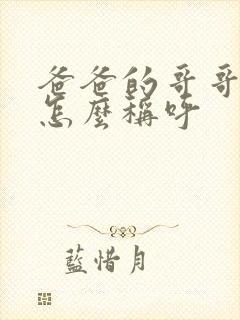 爸爸的哥哥
怎麼稱呼
藍惜月